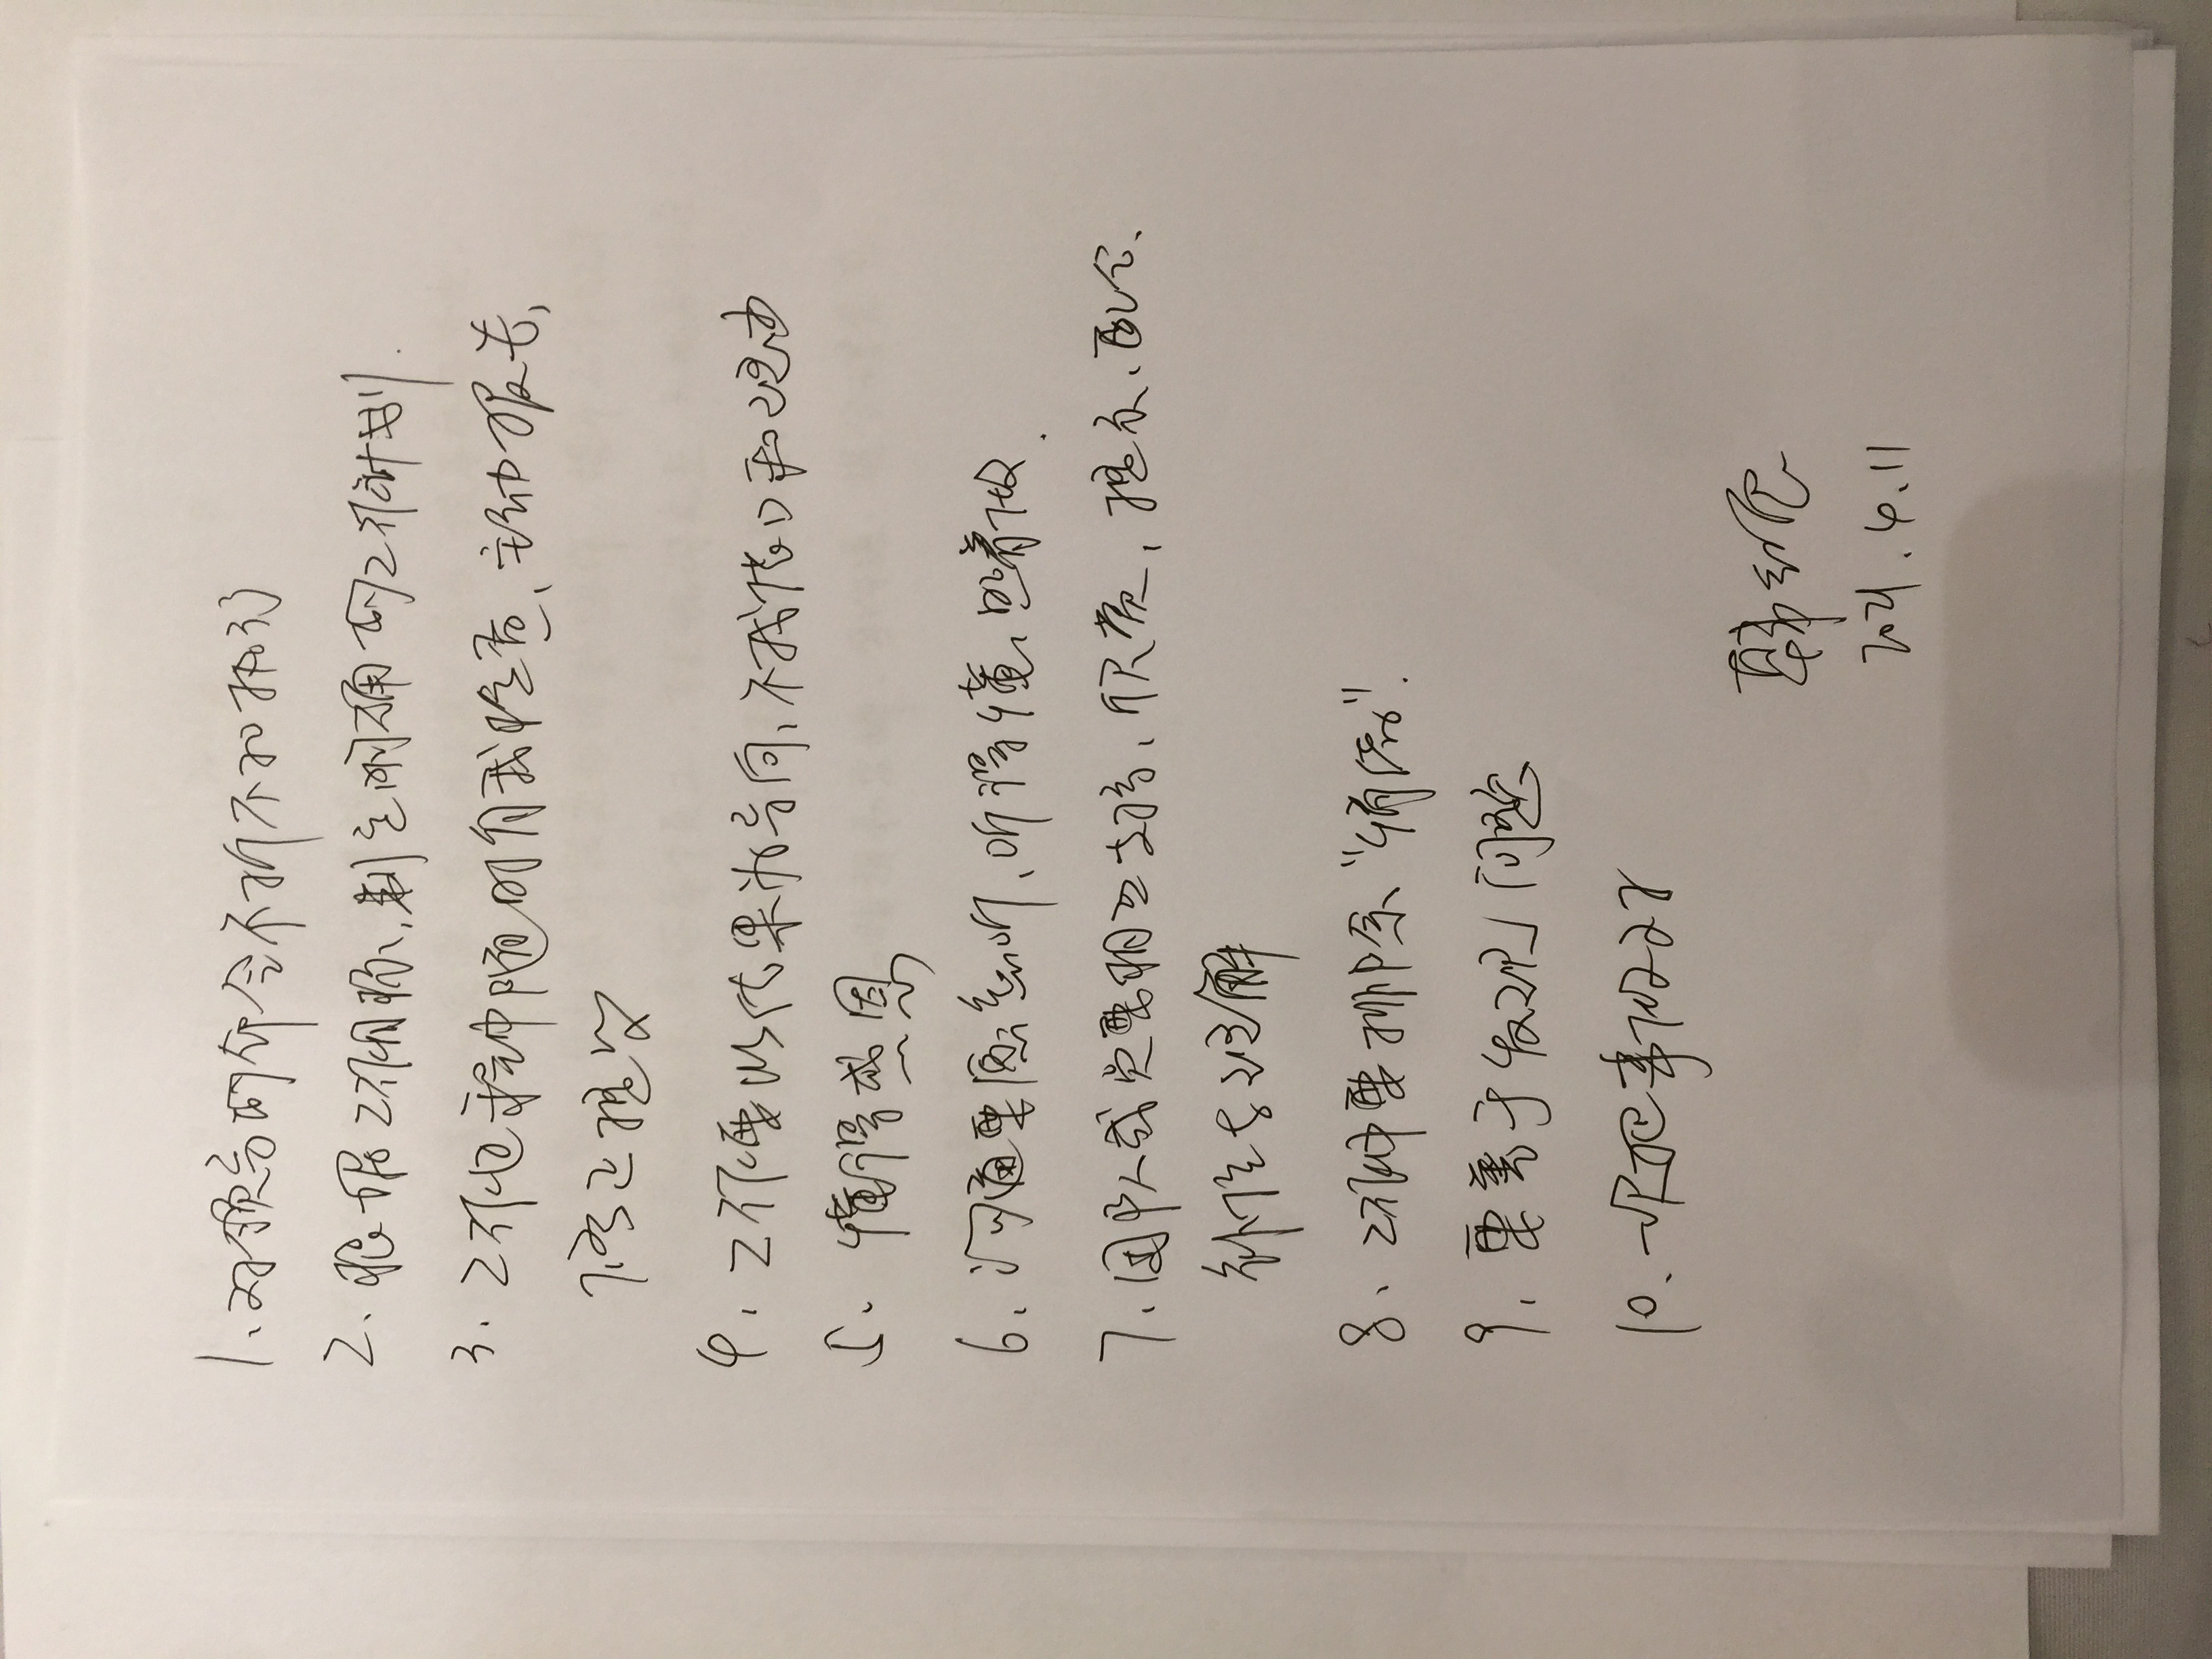 1、对领导的命令不折不扣执行
2、根据工作目标,制定明确的工作计划.
3、工作过程中随时自我检查、主动报告,
修正提议
4、工作要以结果为导向,不找借口和理由
5、懂得感恩
6、沟通要愿意听、听得懂、照着做.
7、团队成员要相互支持、欣赏,提示、配合、
补位与理解
8、工作中要排除“情绪”.
9、要善于发现问题
10、一次把事做对
韩
2021.4.11